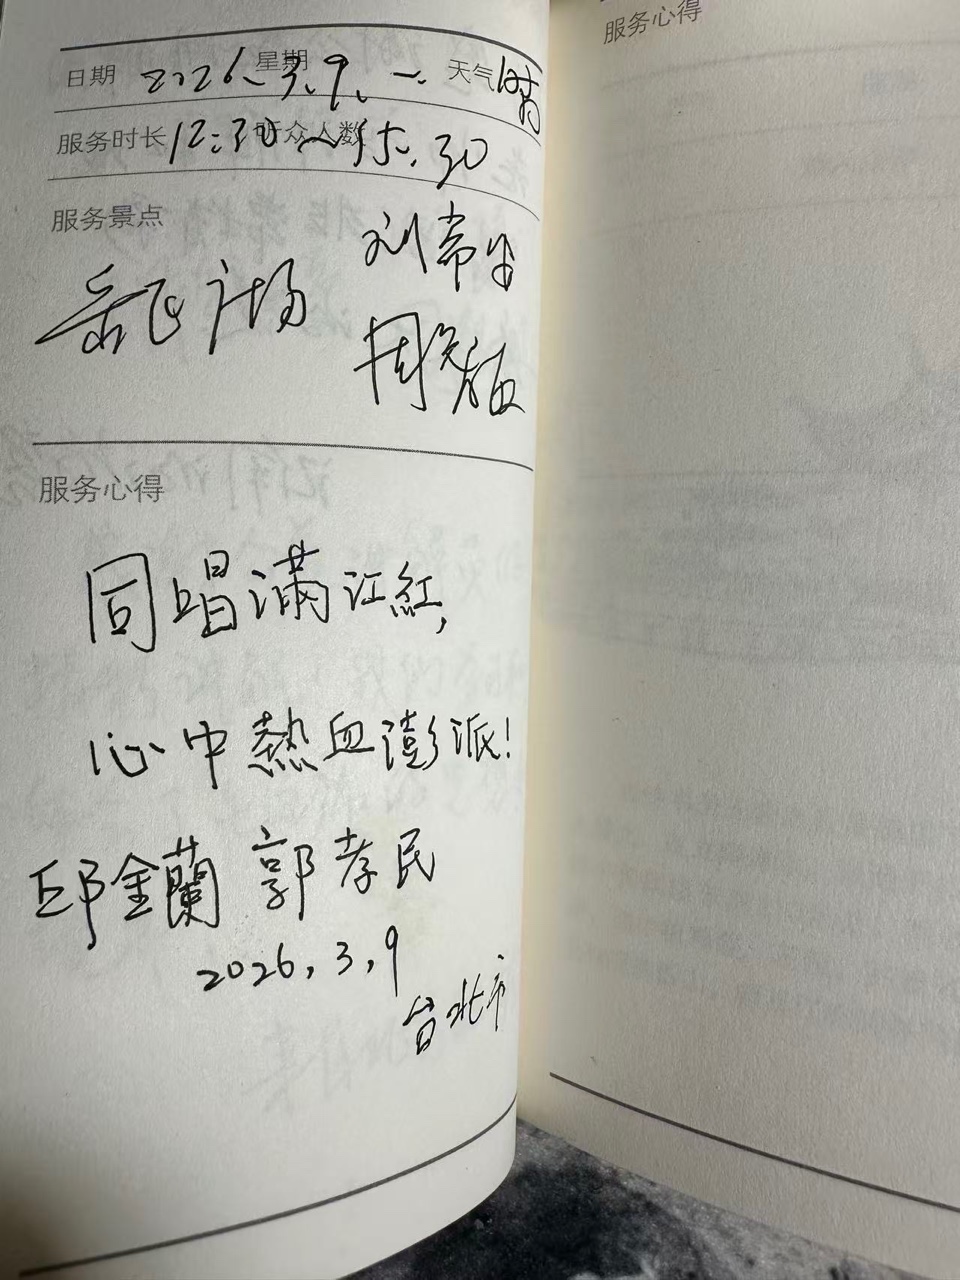 日期 2026.3.9. 星期 一. 天气 晴
服务时长 12:30～15.30 听众人数
服务景点
岳飞广场
同唱满江紅,
服务心得
心中熱血澎派!
邱金蘭 郭孝民
2026.3.9
台北市
服务心得